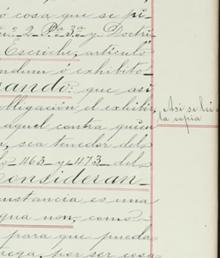 ó cosa que se pi
2. P.e 3.a y Doctri
Escriche, artículo
ó exhibito
ando: que así
obligación el exhibi
aquel contra quien
, sea tenedor del a
1163 y 1173 de la
Consideran
cunstancia es una
qua non, como
para que pueda
por ser cosa
Así se lei
la copia